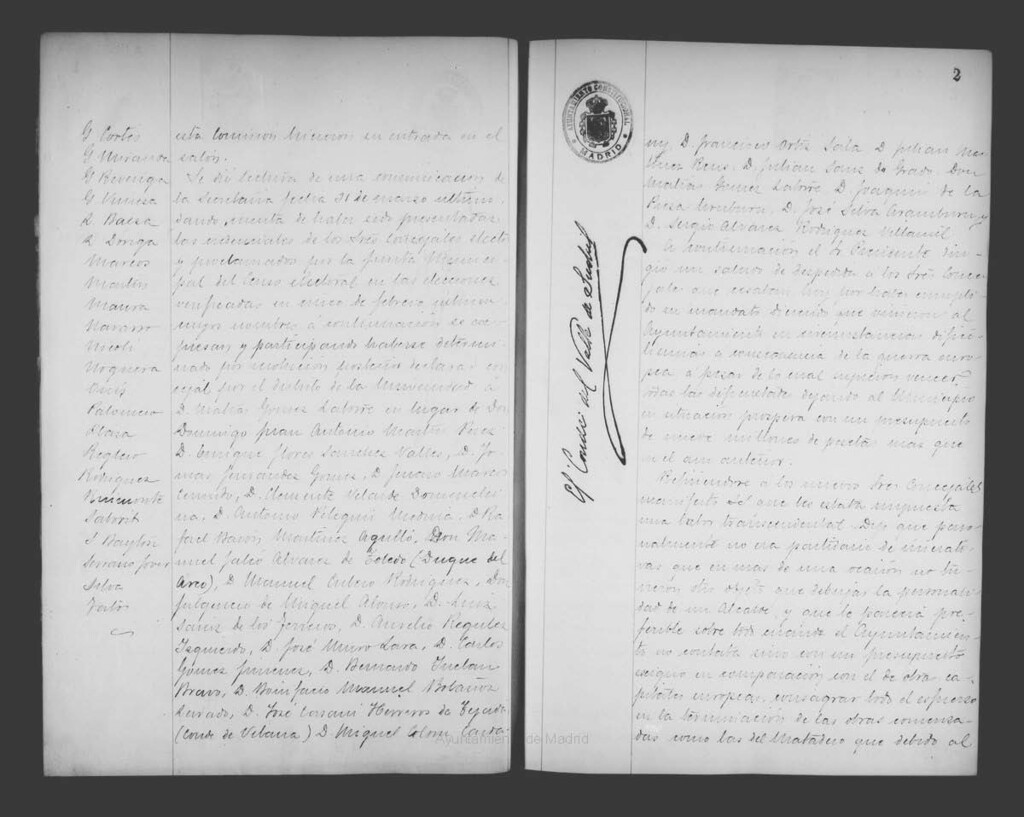 G Cortes
G Miranda
G Revenga
G Vinuesa
L Baeza
L Dóriga
Marcos
Martín
Maura
Navarro
Nicoli
Noguera
Palomero
Plaza
Reglero
Rodriguez
Saborit
S Baytón
Serrano Jover
Silva
esta Comisión hicieron su entrada en el
salón.
Se dió lectura de una comunicación de
la Secretaría fecha 31 de marzo último
dando cuenta de haber sido presentadas
las credenciales de los Sres Concejales electos
y proclamados por la Junta Municipal
del Censo electoral en las elecciones
verificadas en cinco de febrero último
cuyos nombres á continuación se expresan
y participando haberse determinado
por
concejal por el distrito de la Universidad á
D. Matías Gomez Latorre en lugar de Don
Domingo Juan Antonio Martín Perez
D. Enrique Flores Sanchez Valles, D. Tomas
Fernandez Gomez, D. Marcos
D. Clemente Velarde
D. Antonio Pelegrín Medina, D Rafael
Barón Martinez Agulló, Don Manuel
Julio Alvarez de Toledo (Duque del
Arco), D. Manuel Rodriguez, Don
Fulgencio de Miguel Alonso, D. Luis
Sainz de los Terreros, D. Aurelio Regulez
Izquierdo, D. José Muro Lara, D. Carlos
Gomez Jimenez, D. Bernardo
Bravo, D. Bonifacio Manuel Bolaños
Jurado, D. José Cossani Herreros de Tejada
(Conde de Vilana) D Miguel Colom Carda-
AYUNTAMIENTO CONSTITUCIONAL
MADRID
El Conde del Valle de Suchil
2
ny D. Francisco Ortiz D Julian
D. Julian Sanz de Grado, Don
Matías Gomez Latorre D. Joaquin de la
D. José Silva Aramburu y
D. Sergio Alvarez Rodriguez Villamil
A continuación el Sr Presidente dirigió
un saludo de despedida á los Sres Concejales
que cesaban hoy por haber cumplido
su mandato diciendo que vinieron al
Ayuntamiento en circunstancias dificilísimas
á consecuencia de la guerra europea
á pesar de lo cual supieron vencer
todas las dificultades dejando al Municipio
en situación prospera con un presupuesto
de nueve millones de pesetas mas que
en el año anterior.
Refiriendose á los nuevos Sres Concejales
manifestó el que les estaba impuesta
una labor transcendental. Dijo que personalmente
no era partidario de iniciativas
que en mas de una ocasión no tenían
otro objeto que dibujar la personalidad
de un Alcalde, y que le parecía preferible
sobre todo cuando el Ayuntamiento
no contaba sino con un presupuesto
exiguo en comparación con el de otras capitales
europeas, consagrar todo el esfuerzo
en la terminación de las obras comenzadas
como las del Matadero que debido al
Ayuntamiento de Madrid